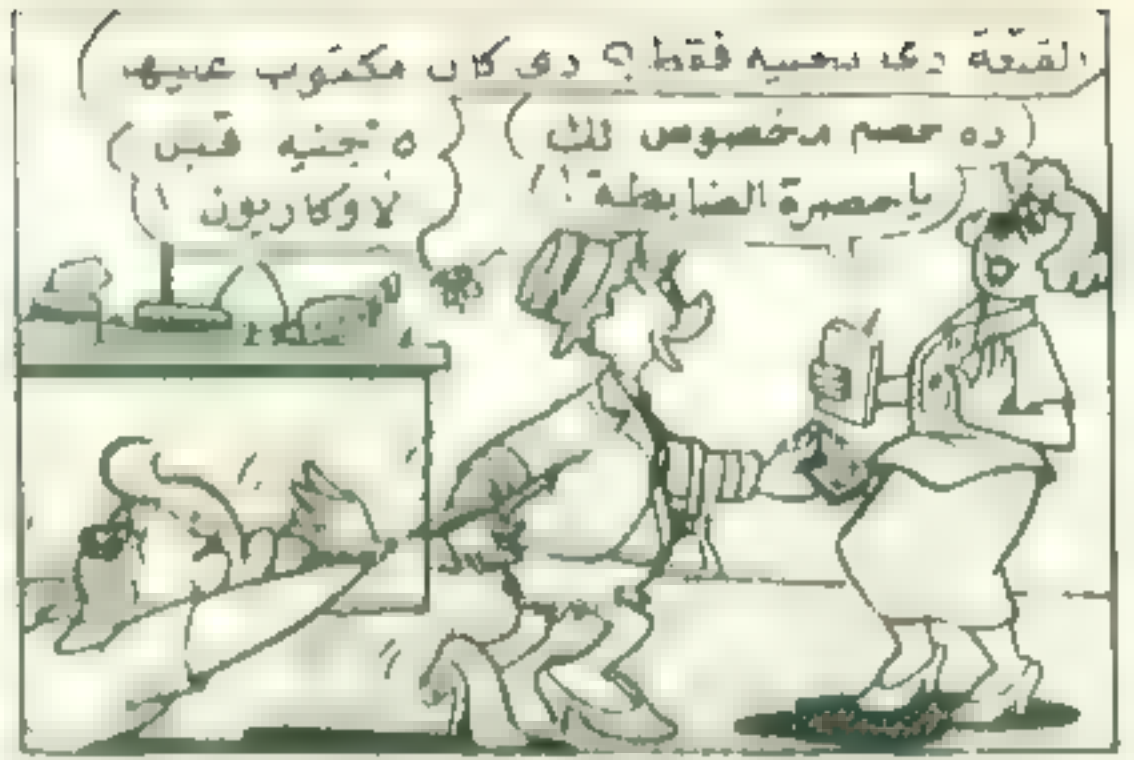 القبعة دى بجنيه فقط ؟ دى كان مكتوب عليها
٥ جنيه قبل
الاوكازيون
ده خصم مخصوص لك
يا حضرة الضابطة !